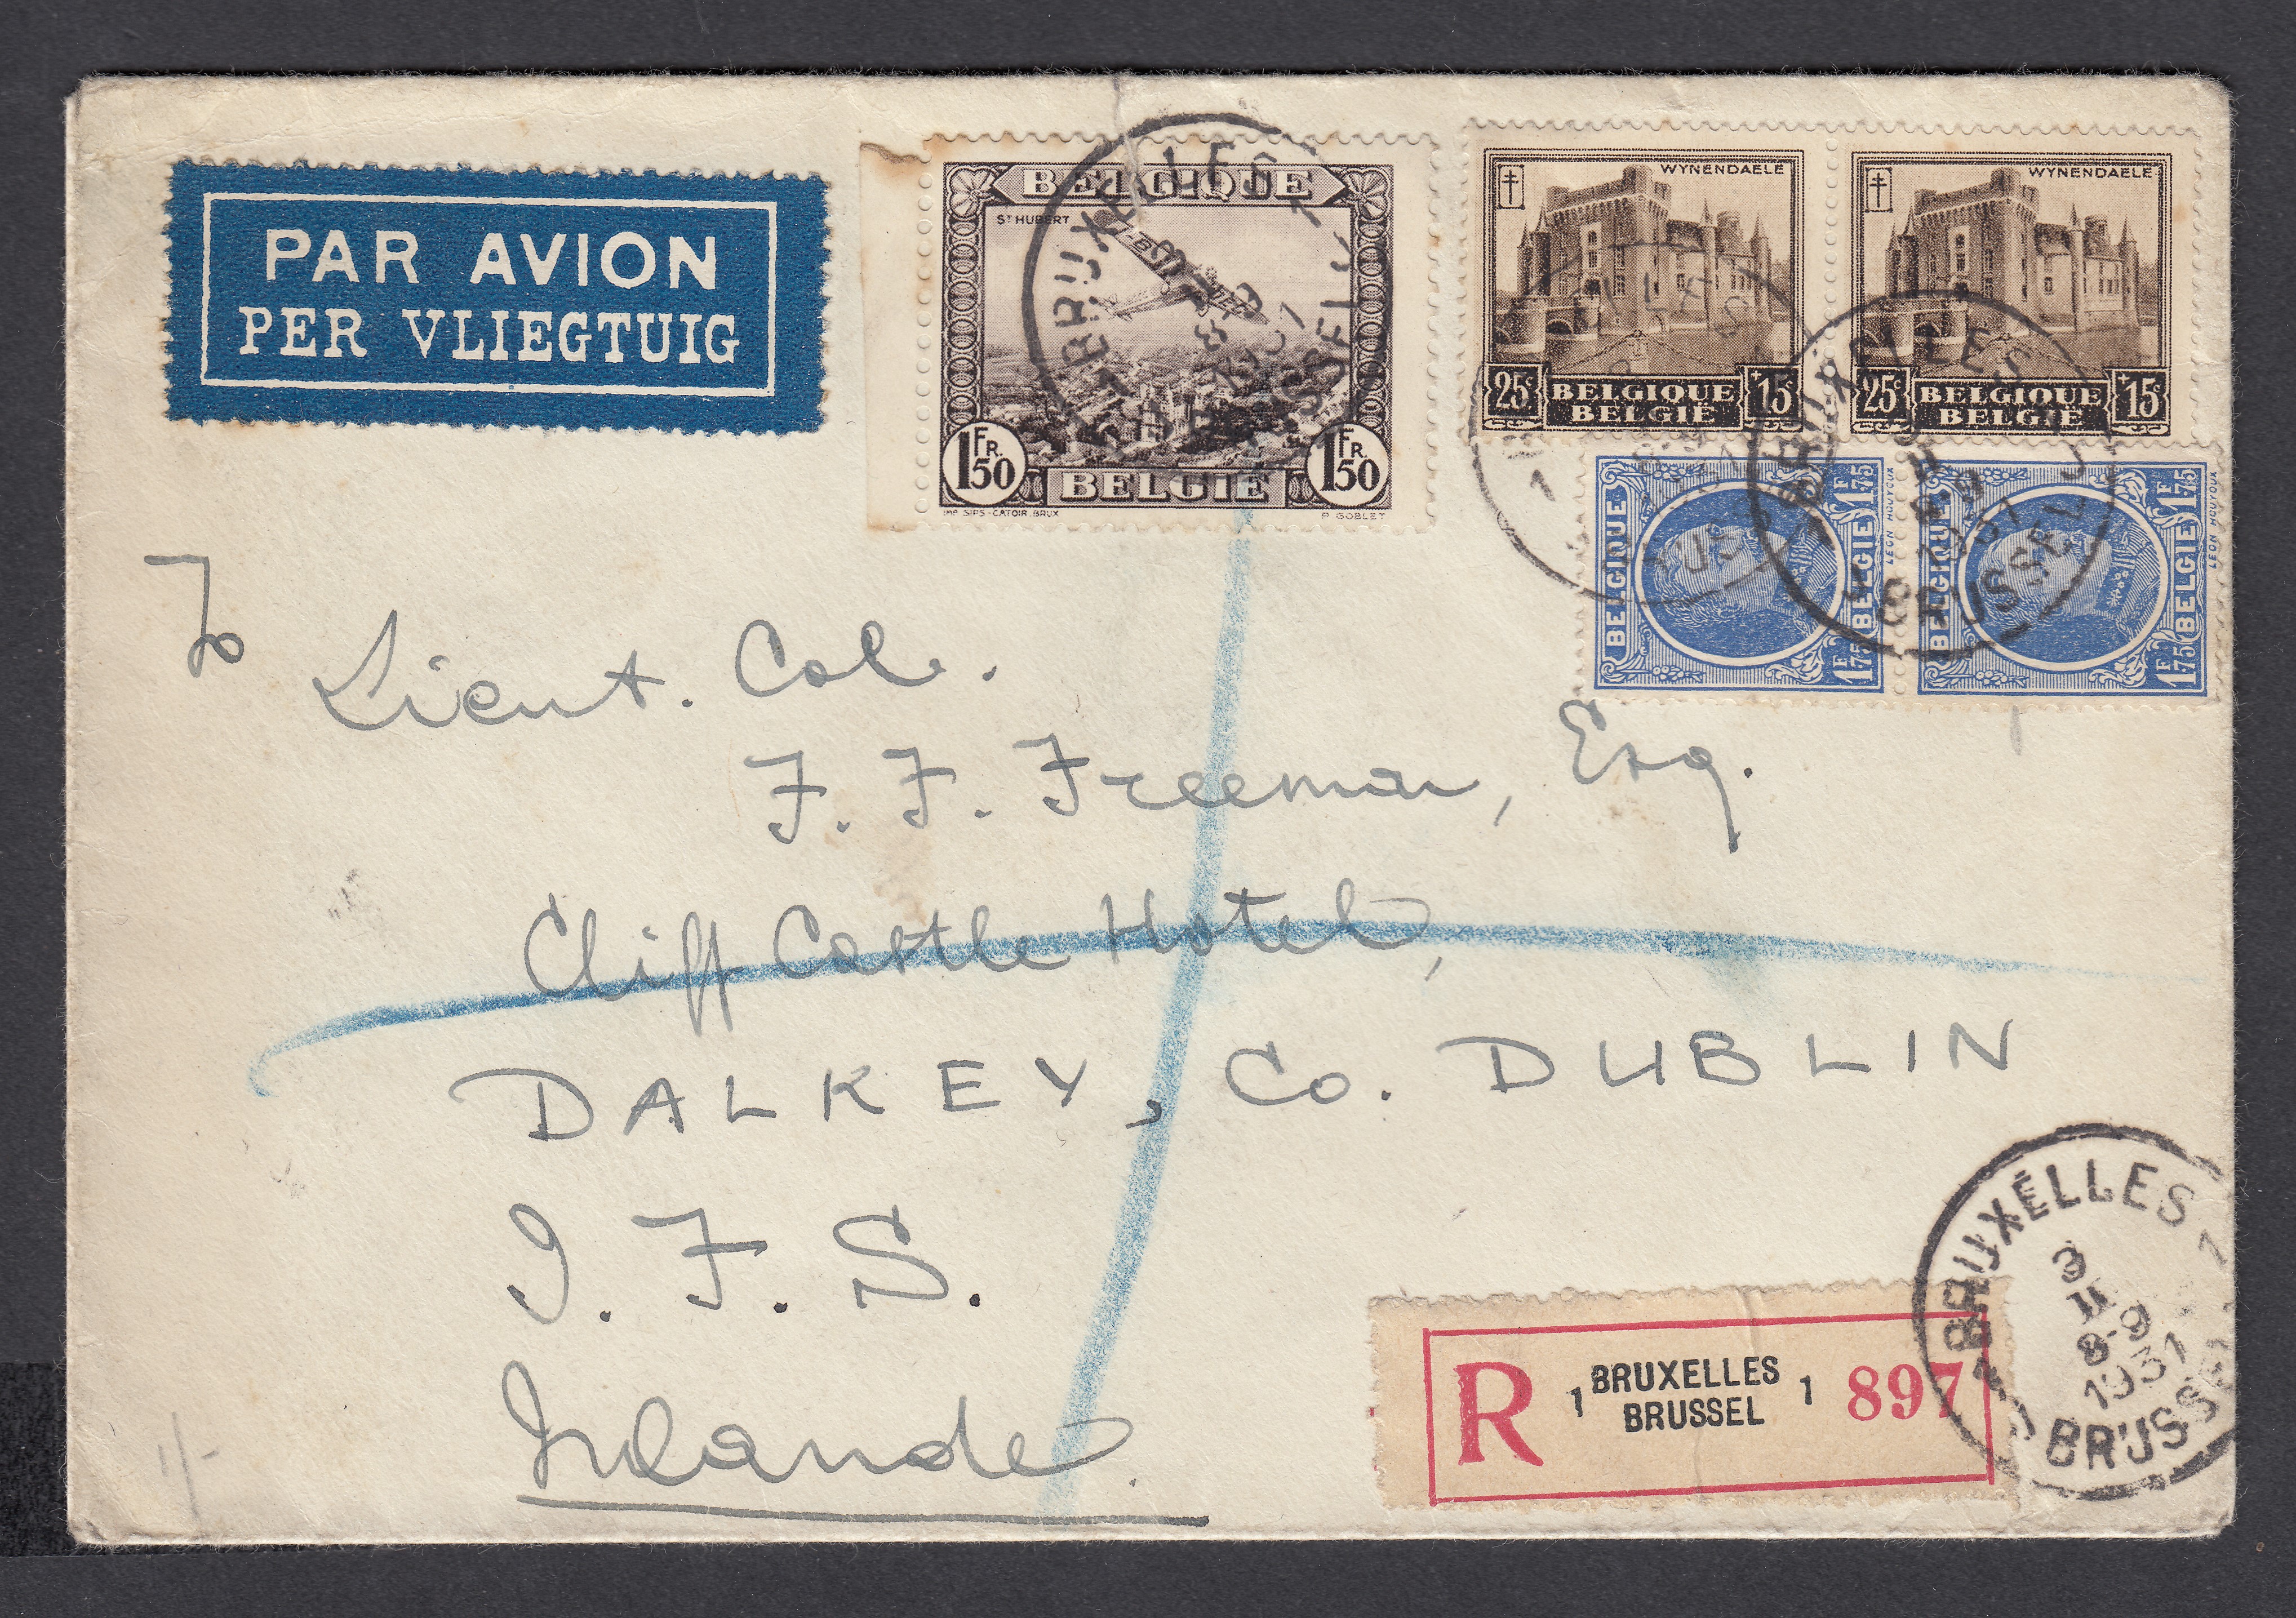 PAR AVION
PER VLIEGTUIG
BELGIQUE
ST HUBERT
1FR50
1FR50
BELGIË
IMP. SIPS-CATOIR. BRUX
P. GOBLET
WYNENDAELE
25c
BELGIQUE
BELGIË
+15c
WYNENDAELE
25c
BELGIQUE
BELGIË
+15c
BELGIQUE
BELGIË
1F75
1F75
LÉON HOUYOUX
BELGIQUE
BELGIË
1F75
1F75
LÉON HOUYOUX
BRUXELLES
BRUSSEL
To
Lieut. Col.
F. F. Freeman, Esq.
Cliff Castle Hotel,
DALKEY, Co. DUBLIN
I. F. S.
Irlande.
R
1 BRUXELLES 1
BRUSSEL
897
BRUXELLES 1
3
II
8-9
1931
1 BRUSSEL
1/-